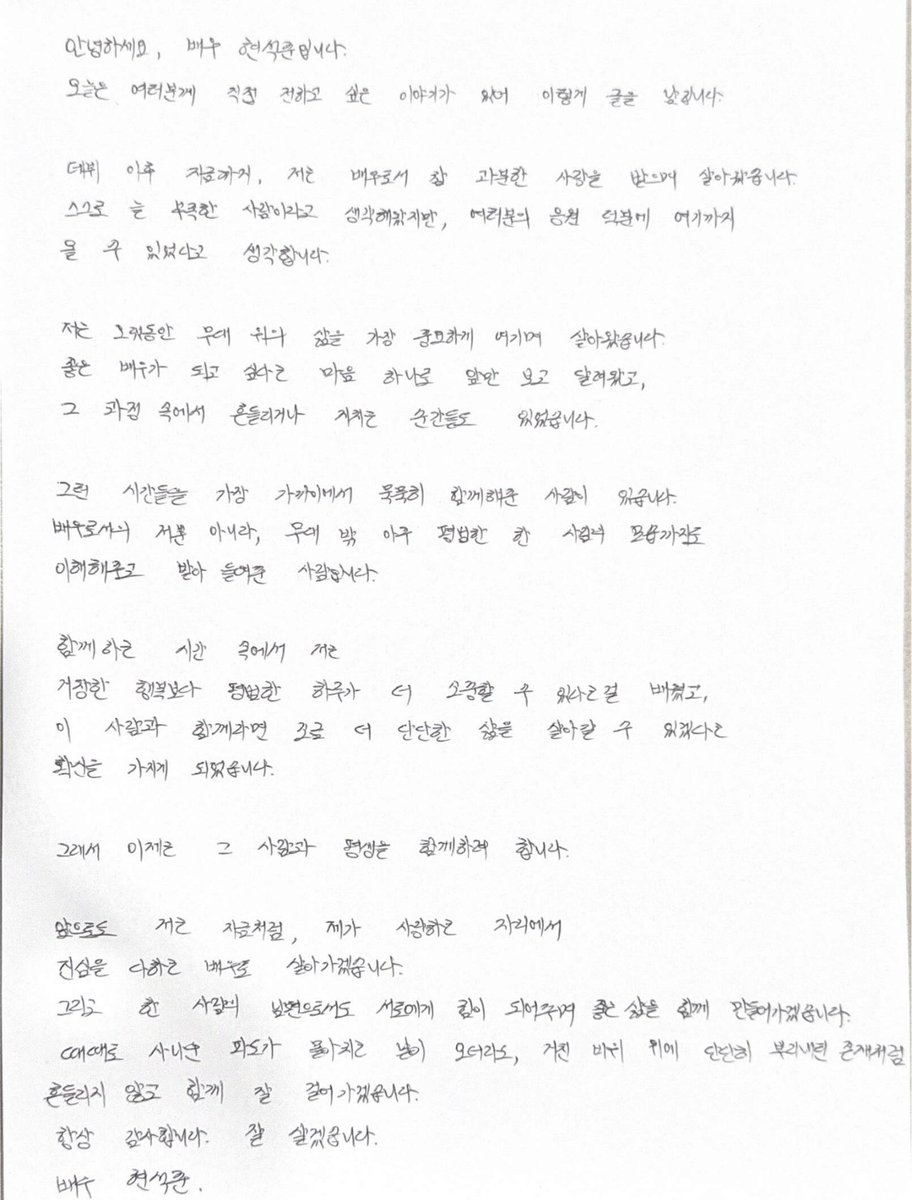 안녕하세요, 배우 현석준입니다.
오늘은 여러분께 직접 전하고 싶은 이야기가 있어 이렇게 글을 남깁니다.
데뷔 이후 지금까지, 저는 배우로서 참 과분한 사랑을 받으며 살아왔습니다.
스스로 늘 부족한 사람이라고 생각해왔지만, 여러분의 응원 덕분에 여기까지
올 수 있었다고 생각합니다.
저는 오랫동안 무대 위의 삶을 가장 중요하게 여기며 살아왔습니다.
좋은 배우가 되고 싶다는 마음 하나로 앞만 보고 달려왔고,
그 과정 속에서 흔들리거나 지치는 순간들도 있었습니다.
그런 시간들을 가장 가까이에서 묵묵히 함께해준 사람이 있습니다.
배우로서의 저뿐 아니라, 무대 밖 아주 평범한 한 사람의 모습까지도
이해해주고 받아 들여준 사람입니다.
함께하는 시간 속에서 저는
거창한 행복보다 평범한 하루가 더 소중할 수 있다는걸 배웠고,
이 사람과 함께라면 조금 더 단단한 삶을 살아갈 수 있겠다는
확신을 가지게 되었습니다.
그래서 이제는 그 사람과 평생을 함께하려 합니다.
앞으로도 저는 지금처럼, 제가 사랑하는 자리에서
진심을 다하는 배우로 살아가겠습니다.
그리고 한 사람의 남편으로서도 서로에게 힘이 되어주며 좋은 삶을 함께 만들어가겠습니다.
때때로 사나운 파도가 몰아치는 날이 오더라도, 거친 바위 위에 단단히 뿌리내린 존재처럼
흔들리지 않고 함께 잘 걸어가겠습니다.
항상 감사합니다. 잘 살겠습니다.
배우 현석준.